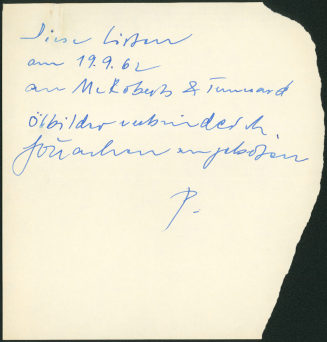 Diese Listen
am 19.9.62
an McRoberts & Tunnard
Ölbilder unverbindlich
angeboten
P.